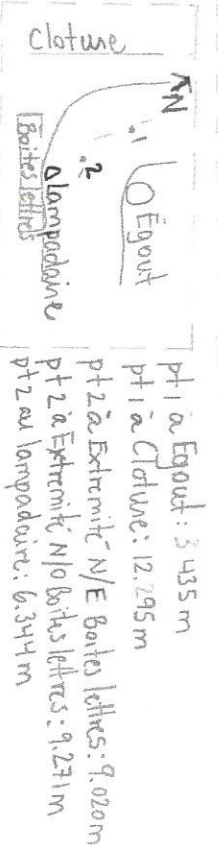 Cloture
N
.1
Egout
.2
Lampadaire
Boites lettres
pt 1 à Egout : 3.435 m
pt 1 à Cloture : 12.295 m
pt 2 à Extremité N/E Boites lettres : 9.020 m
pt 2 à Extremité N/O Boites lettres : 9.271 m
pt 2 au lampadaire : 6.344 m